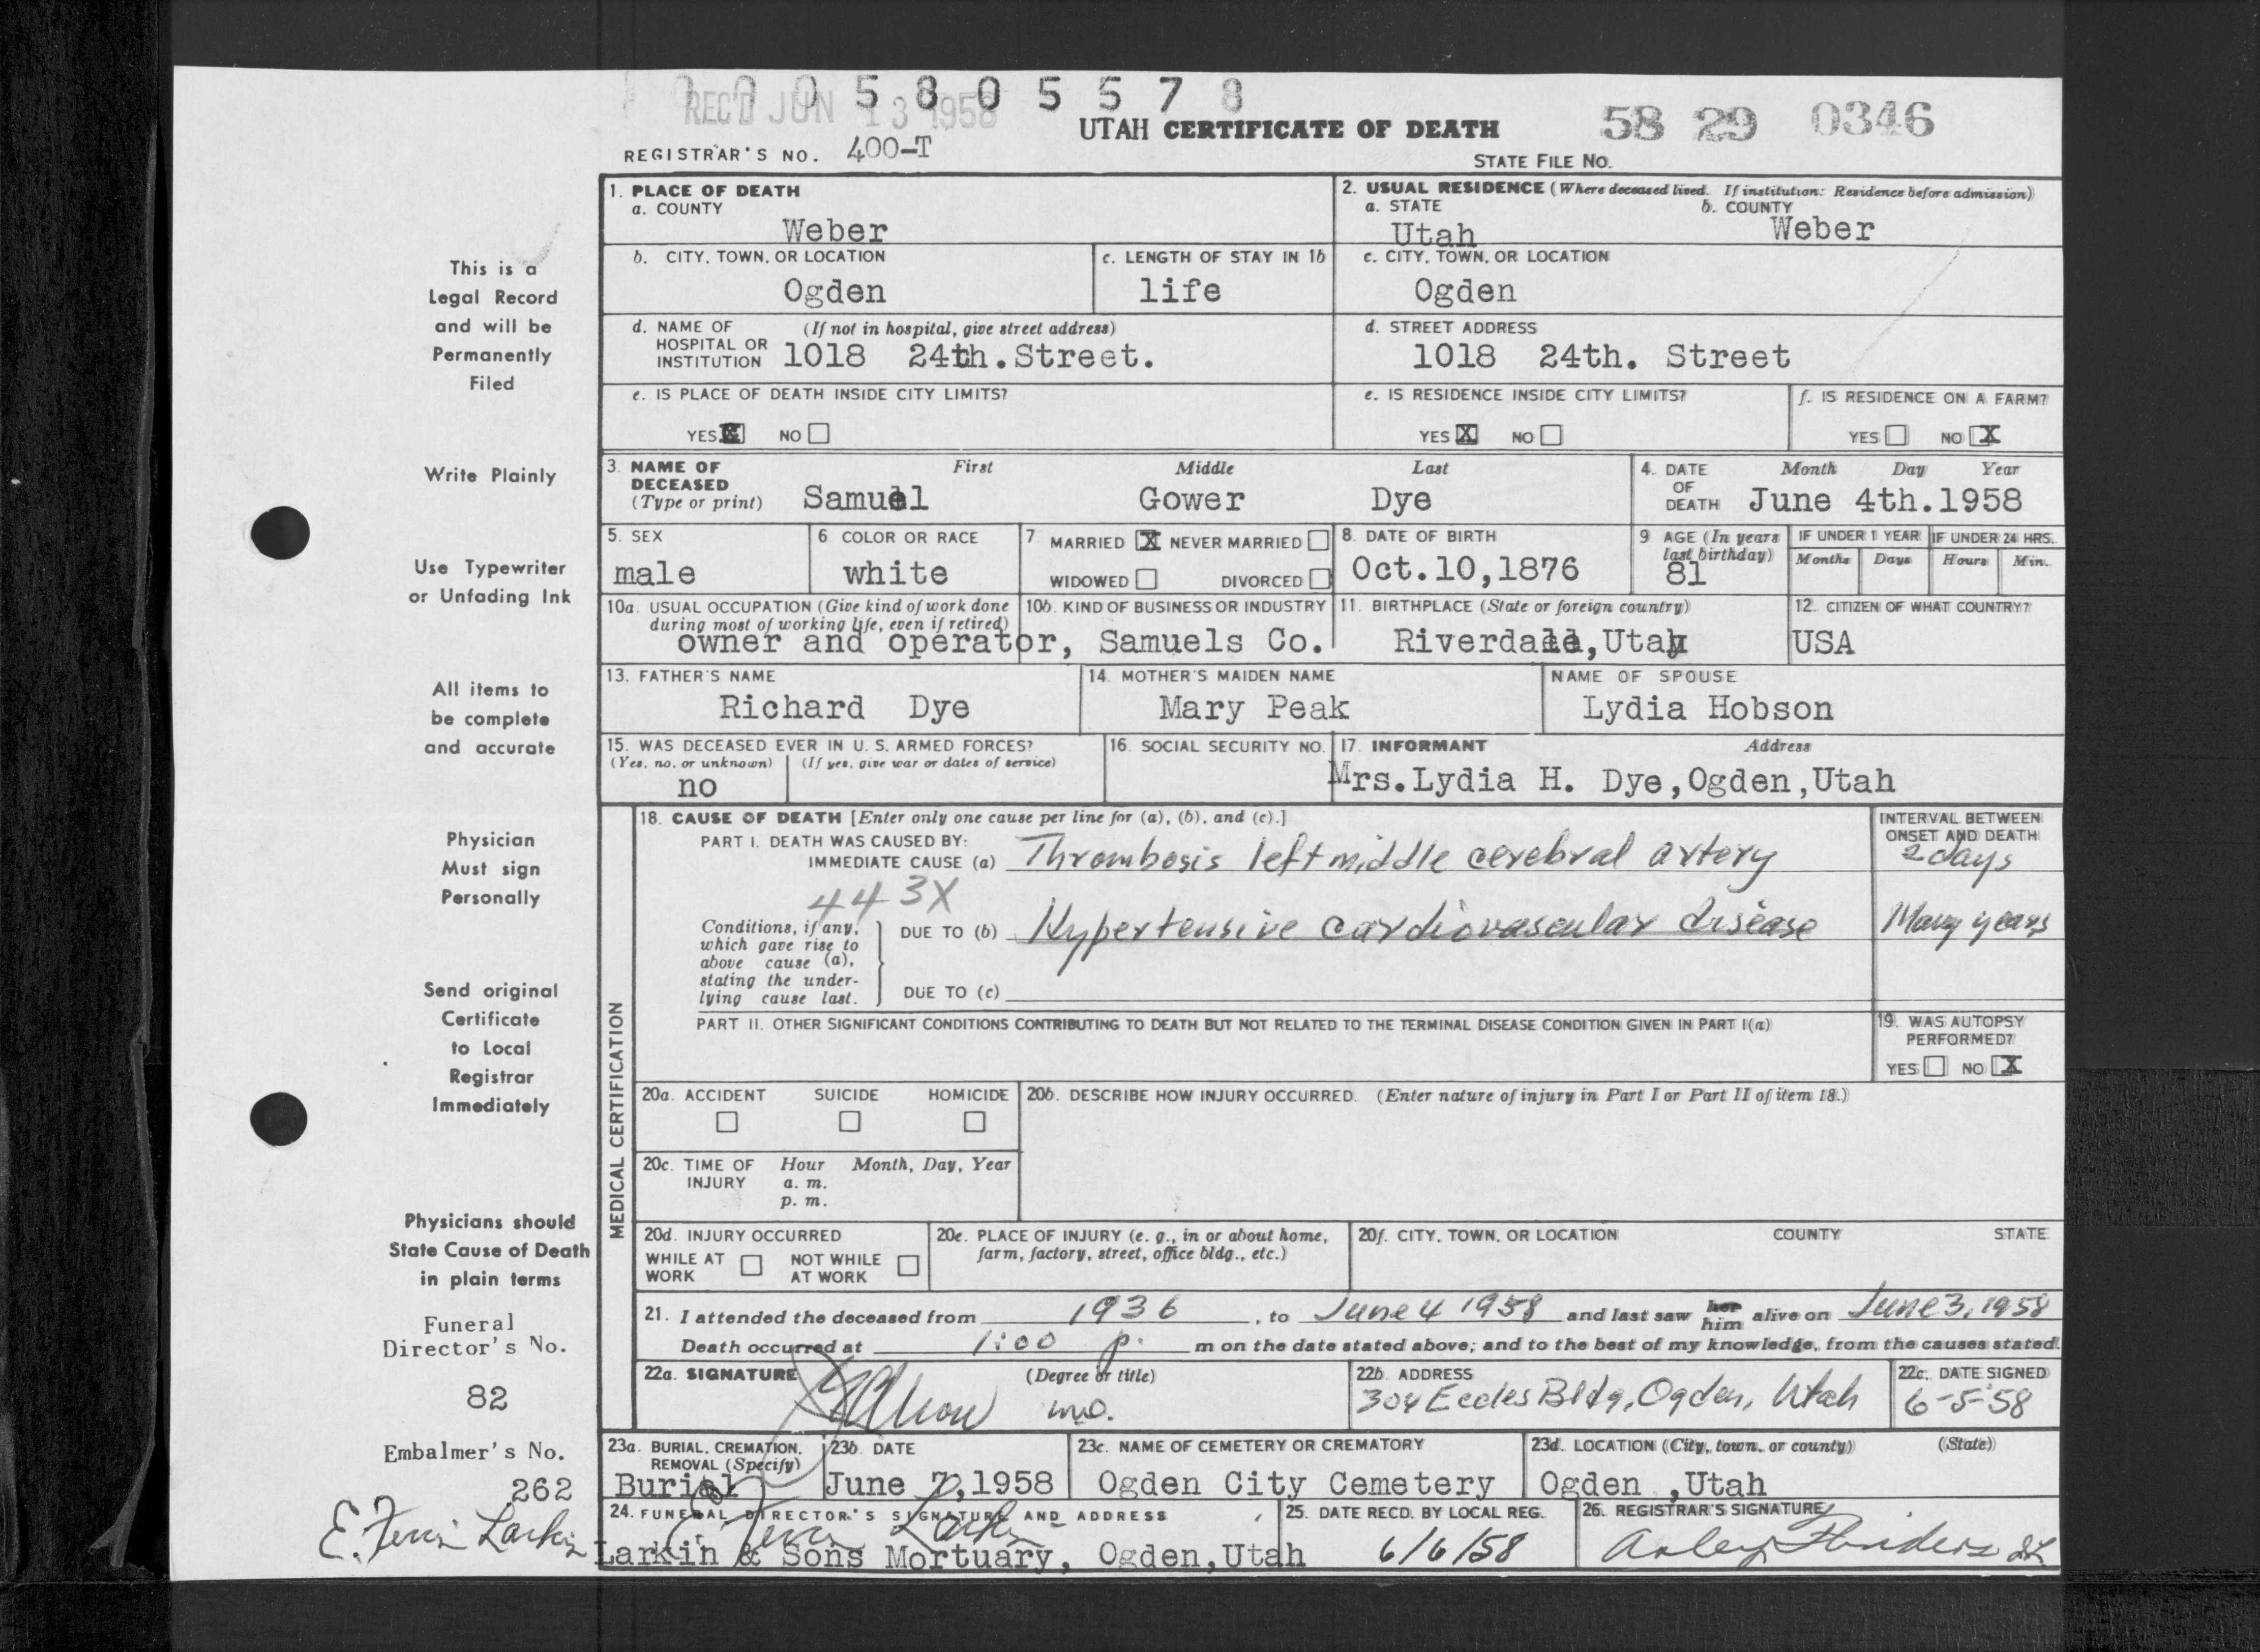 0 0 0 5 8 0 5 5 7 8
REC'D JUN 13 1958
UTAH CERTIFICATE OF DEATH
58 29 0346
REGISTRAR'S NO. 400-T
STATE FILE NO.
1. PLACE OF DEATH
a. COUNTY
Weber
2. USUAL RESIDENCE (Where deceased lived. If institution: Residence before admission)
a. STATE b. COUNTY
Utah Weber
b. CITY, TOWN, OR LOCATION
Ogden
c. LENGTH OF STAY IN 1b
life
c. CITY, TOWN, OR LOCATION
Ogden
d. NAME OF (If not in hospital, give street address)
HOSPITAL OR
INSTITUTION 1018 24th. Street.
d. STREET ADDRESS
1018 24th. Street
e. IS PLACE OF DEATH INSIDE CITY LIMITS?
YES X NO
e. IS RESIDENCE INSIDE CITY LIMITS?
YES X NO
f. IS RESIDENCE ON A FARM?
YES NO X
3. NAME OF First Middle Last
DECEASED
(Type or print) Samuel Gower Dye
4. DATE Month Day Year
OF
DEATH June 4th. 1958
5. SEX
male
6 COLOR OR RACE
white
7 MARRIED X NEVER MARRIED
WIDOWED DIVORCED
8. DATE OF BIRTH
Oct. 10, 1876
9 AGE (In years
last birthday)
81
IF UNDER 1 YEAR
Months Days
IF UNDER 24 HRS.
Hours Min.
10a. USUAL OCCUPATION (Give kind of work done
during most of working life, even if retired)
10b. KIND OF BUSINESS OR INDUSTRY
owner and operator, Samuels Co.
11. BIRTHPLACE (State or foreign country)
Riverdale, Utah
12. CITIZEN OF WHAT COUNTRY?
USA
13. FATHER'S NAME
Richard Dye
14. MOTHER'S MAIDEN NAME
Mary Peak
NAME OF SPOUSE
Lydia Hobson
15. WAS DECEASED EVER IN U. S. ARMED FORCES?
(Yes, no, or unknown) (If yes, give war or dates of service)
no
16. SOCIAL SECURITY NO.
17. INFORMANT Address
Mrs. Lydia H. Dye, Ogden, Utah
MEDICAL CERTIFICATION
18. CAUSE OF DEATH [Enter only one cause per line for (a), (b), and (c).]
PART I. DEATH WAS CAUSED BY:
IMMEDIATE CAUSE (a) Thrombosis left middle cerebral artery
INTERVAL BETWEEN
ONSET AND DEATH
2 days
443X
Conditions, if any,
which gave rise to
above cause (a),
stating the under-
lying cause last.
DUE TO (b) Hypertensive cardiovascular disease
Many years
DUE TO (c)
PART II. OTHER SIGNIFICANT CONDITIONS CONTRIBUTING TO DEATH BUT NOT RELATED TO THE TERMINAL DISEASE CONDITION GIVEN IN PART I(a)
19. WAS AUTOPSY
PERFORMED?
YES NO X
20a. ACCIDENT SUICIDE HOMICIDE
20b. DESCRIBE HOW INJURY OCCURRED. (Enter nature of injury in Part I or Part II of item 18.)
20c. TIME OF Hour Month, Day, Year
INJURY a. m.
p. m.
20d. INJURY OCCURRED
WHILE AT NOT WHILE
WORK AT WORK
20e. PLACE OF INJURY (e. g., in or about home,
farm, factory, street, office bldg., etc.)
20f. CITY, TOWN, OR LOCATION COUNTY STATE
21. I attended the deceased from 1936, to June 4 1958 and last saw her him alive on June 3, 1958
Death occurred at 1:00 p. m on the date stated above; and to the best of my knowledge, from the causes stated.
22a. SIGNATURE (Degree or title)
M.D.
22b. ADDRESS
304 Eccles Bldg, Ogden, Utah
22c. DATE SIGNED
6-5-58
23a. BURIAL, CREMATION,
REMOVAL (Specify)
Burial
23b. DATE
June 7, 1958
23c. NAME OF CEMETERY OR CREMATORY
Ogden City Cemetery
23d. LOCATION (City, town, or county) (State)
Ogden, Utah
24. FUNERAL DIRECTOR'S SIGNATURE AND ADDRESS
Larkin & Sons Mortuary, Ogden, Utah
25. DATE RECD. BY LOCAL REG.
6/6/58
26. REGISTRAR'S SIGNATURE
This is a
Legal Record
and will be
Permanently
Filed
Write Plainly
Use Typewriter
or Unfading Ink
All items to
be complete
and accurate
Physician
Must sign
Personally
Send original
Certificate
to Local
Registrar
Immediately
Physicians should
State Cause of Death
in plain terms
Funeral
Director's No.
82
Embalmer's No.
262
E. Larkin